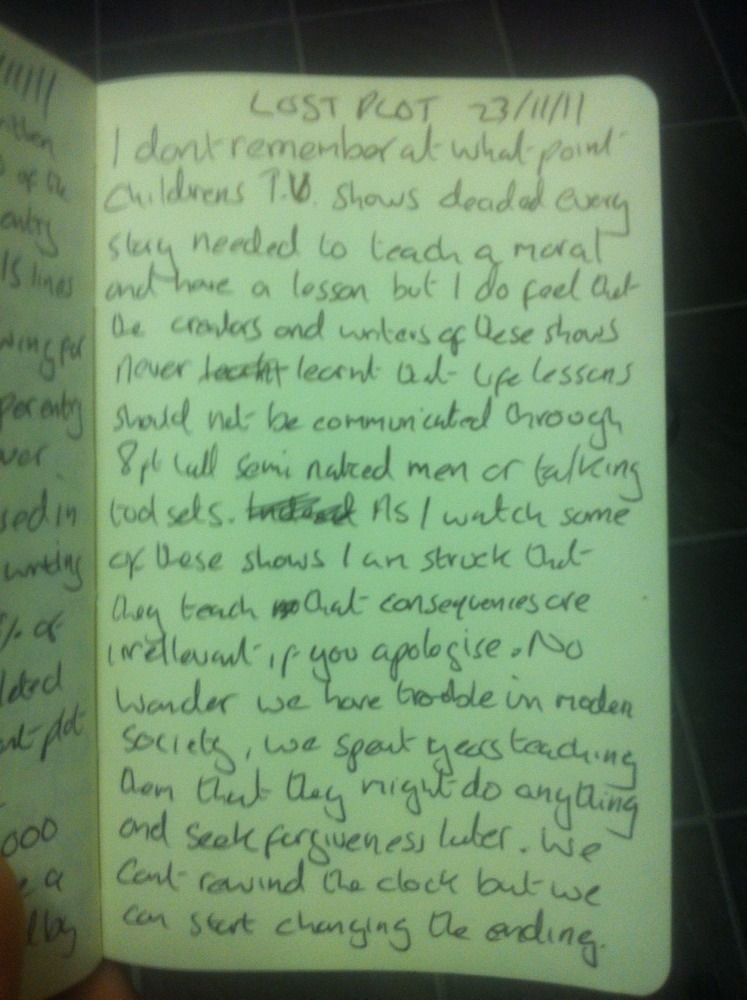 11/11
of the
entry
15 lines
per entry
sed in
writing
% of
plot
000
a
by
LOST PLOT 23/11/11
I dont remember at what point
Childrens T.V. shows decided every
story needed to teach a moral
and have a lesson but I do feel that
the creators and writers of these shows
never learnt that life lessons
should not be communicated through
8 ft tall semi naked men or talking
tool sets. As I watch some
of these shows I am struck that
they teach that consequences are
irrellevant if you apologise. No
wonder we have trouble in modern
society, we spent years teaching
them that they might do anything
and seek forgiveness later. We
Cant rewind the clock but we
can start changing the ending.